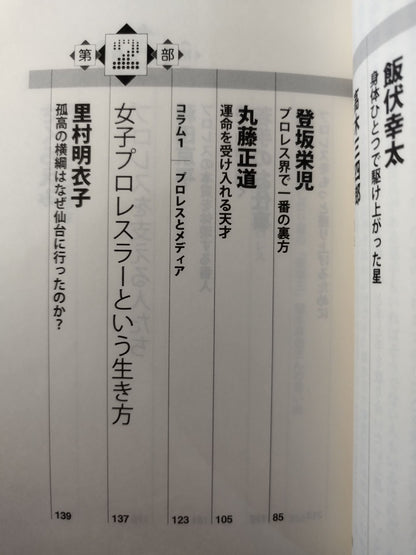 飯伏幸太
身体ひとつで駆け上がった星
高木三四郎
登坂栄児
プロレス界で一番の裏方
85
丸藤正道
運命を受け入れる天才
105
コラム1 プロレスとメディア
123
第2部
女子プロレスラーという生き方
137
里村明衣子
孤高の横綱はなぜ仙台に行ったのか?
139